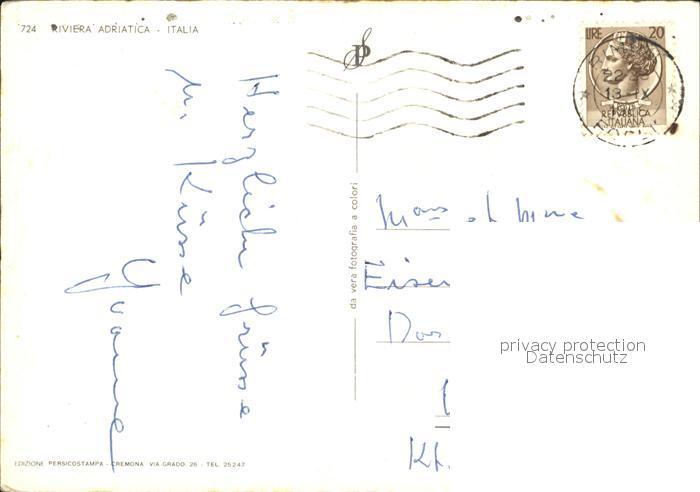 724 RIVIERA ADRIATICA - ITALIA
Herzliche Grüsse
u. Küsse
Yvonne
EDIZIONE PERSICOSTAMPA - CREMONA VIA GRADO, 26 - TEL. 25247
da vera fotografia a colori
LIRE 20
REPVBBLICA
ITALIANA
22
13 IX
et Mme
Kt.
privacy protection
Datenschutz